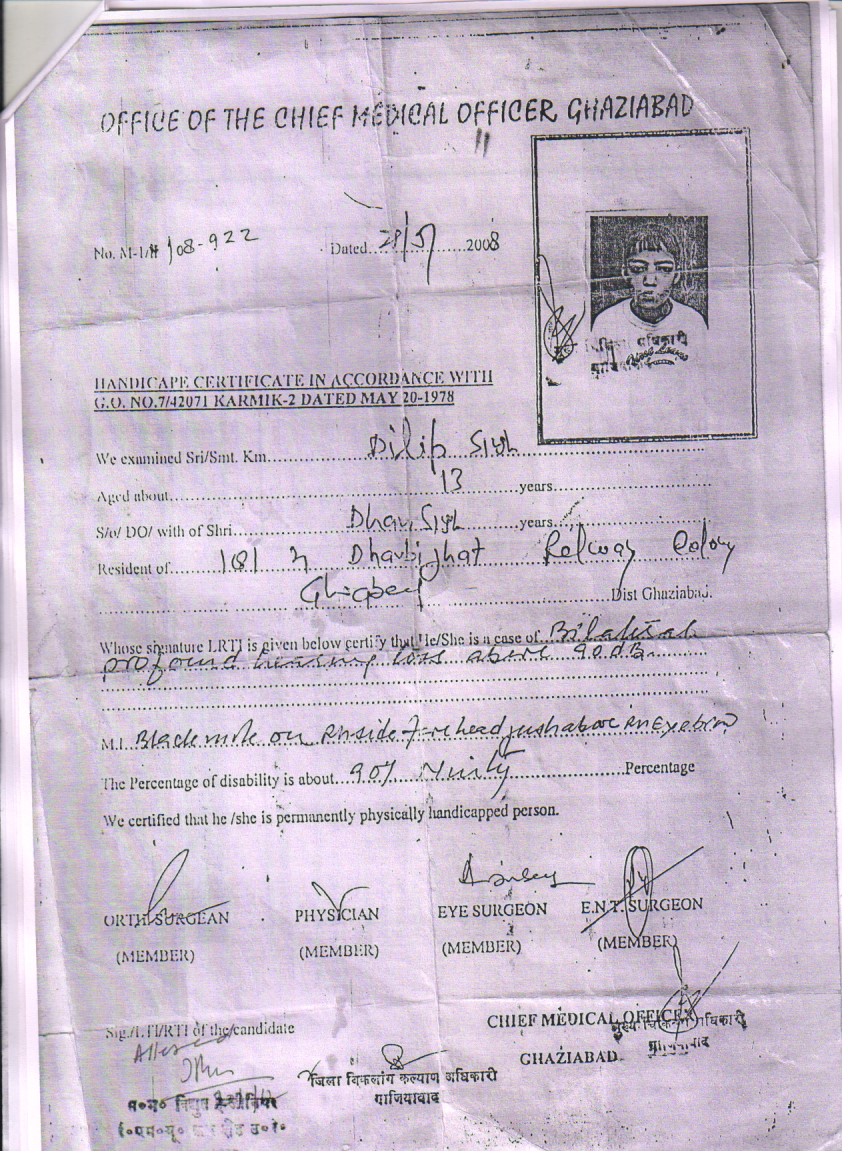 OFFICE OF THE CHIEF MEDICAL OFFICER GHAZIABAD
No. M-1/# 108-922 Dated....28/5/......2008
HANDICAPE CERTIFICATE IN ACCORDANCE WITH
G.O. NO.7/42071 KARMIK-2 DATED MAY 20-1978
We examined Sri/Smt. Km....Dilip Sigh
Aged about....13....years
S/o/ DO/ with of Shri....Sigh....years
Resident of....181 Dhaubighat Relway Colony
....Dist Ghaziabad.
Whose signature LRTI is given below certify that He/She is a case of Bilateral
profound hearing loss above 90 dB
M.I. Black mole on Rt side forehead just above Rt Eyebrow
The Percentage of disability is about 90% Ninty....Percentage
We certified that he /she is permanently physically handicapped person.
ORTH SURGEAN PHYSICIAN EYE SURGEON E.N.T. SURGEON
(MEMBER) (MEMBER) (MEMBER) (MEMBER)
Sig./LTI/RTI of the candidate CHIEF MEDICAL OFFICER
मुख्य चिकित्सा अधिकारी
Attested GHAZIABAD गाजियाबाद
जिला विकलांग कल्याण अधिकारी
गाजियाबाद